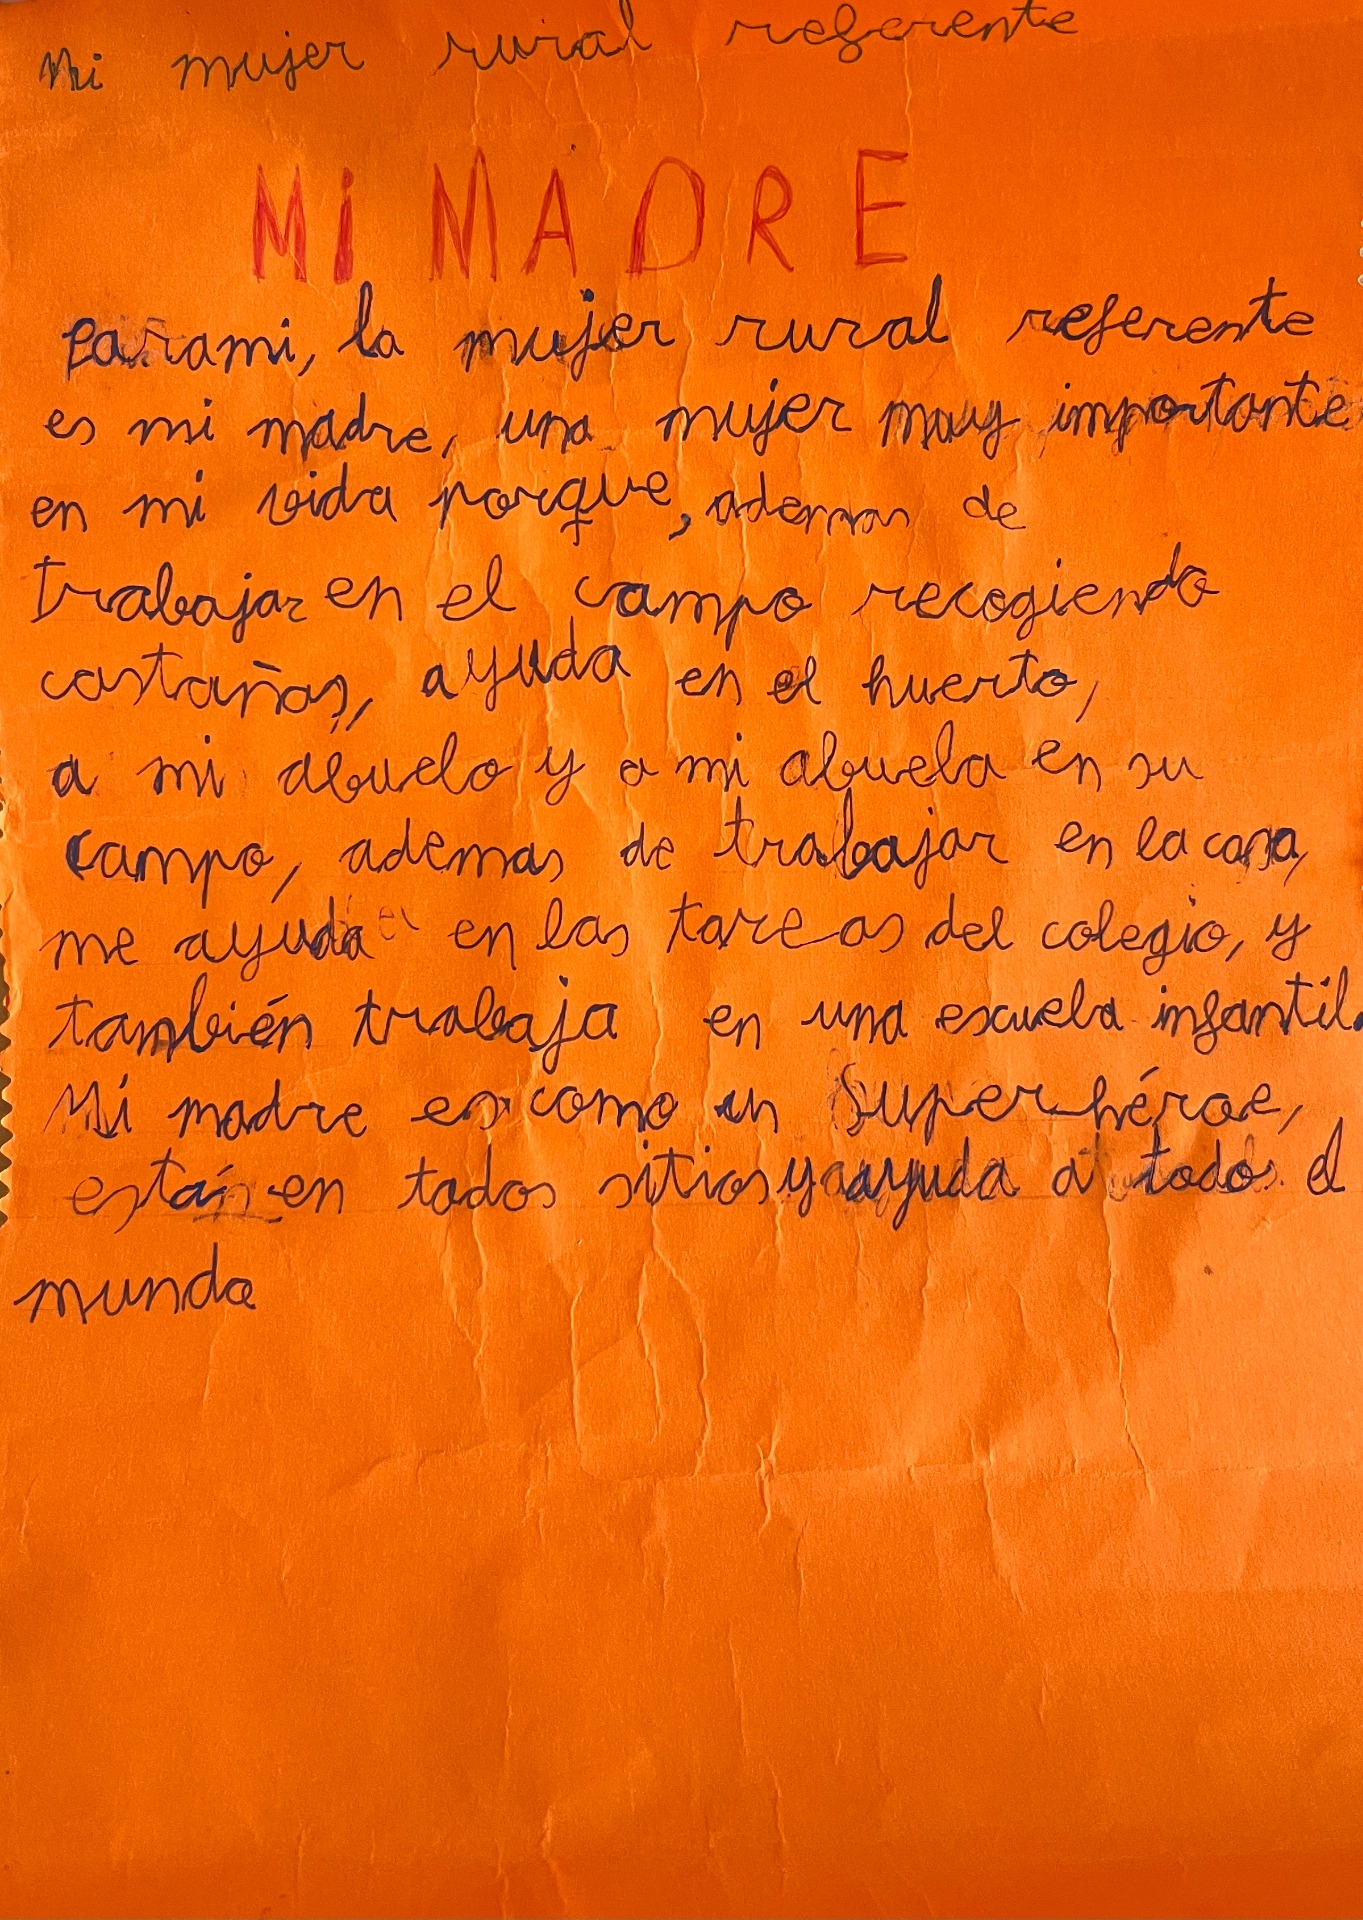 Mi mujer rural referente
Mi MADRE
Parami, la mujer rural referente
es mi madre, una mujer muy importante
en mi vida porque, ademas de
trabajar en el campo recogiendo
castañas, ayuda en el huerto,
a mi abuelo y a mi abuela en su
campo, ademas de trabajar en la casa,
me ayuda en las tareas del colegio, y
también trabaja en una escuela infantil.
Mi madre es como un Superhéroe,
está en todos sitios y ayuda a todo el
mundo